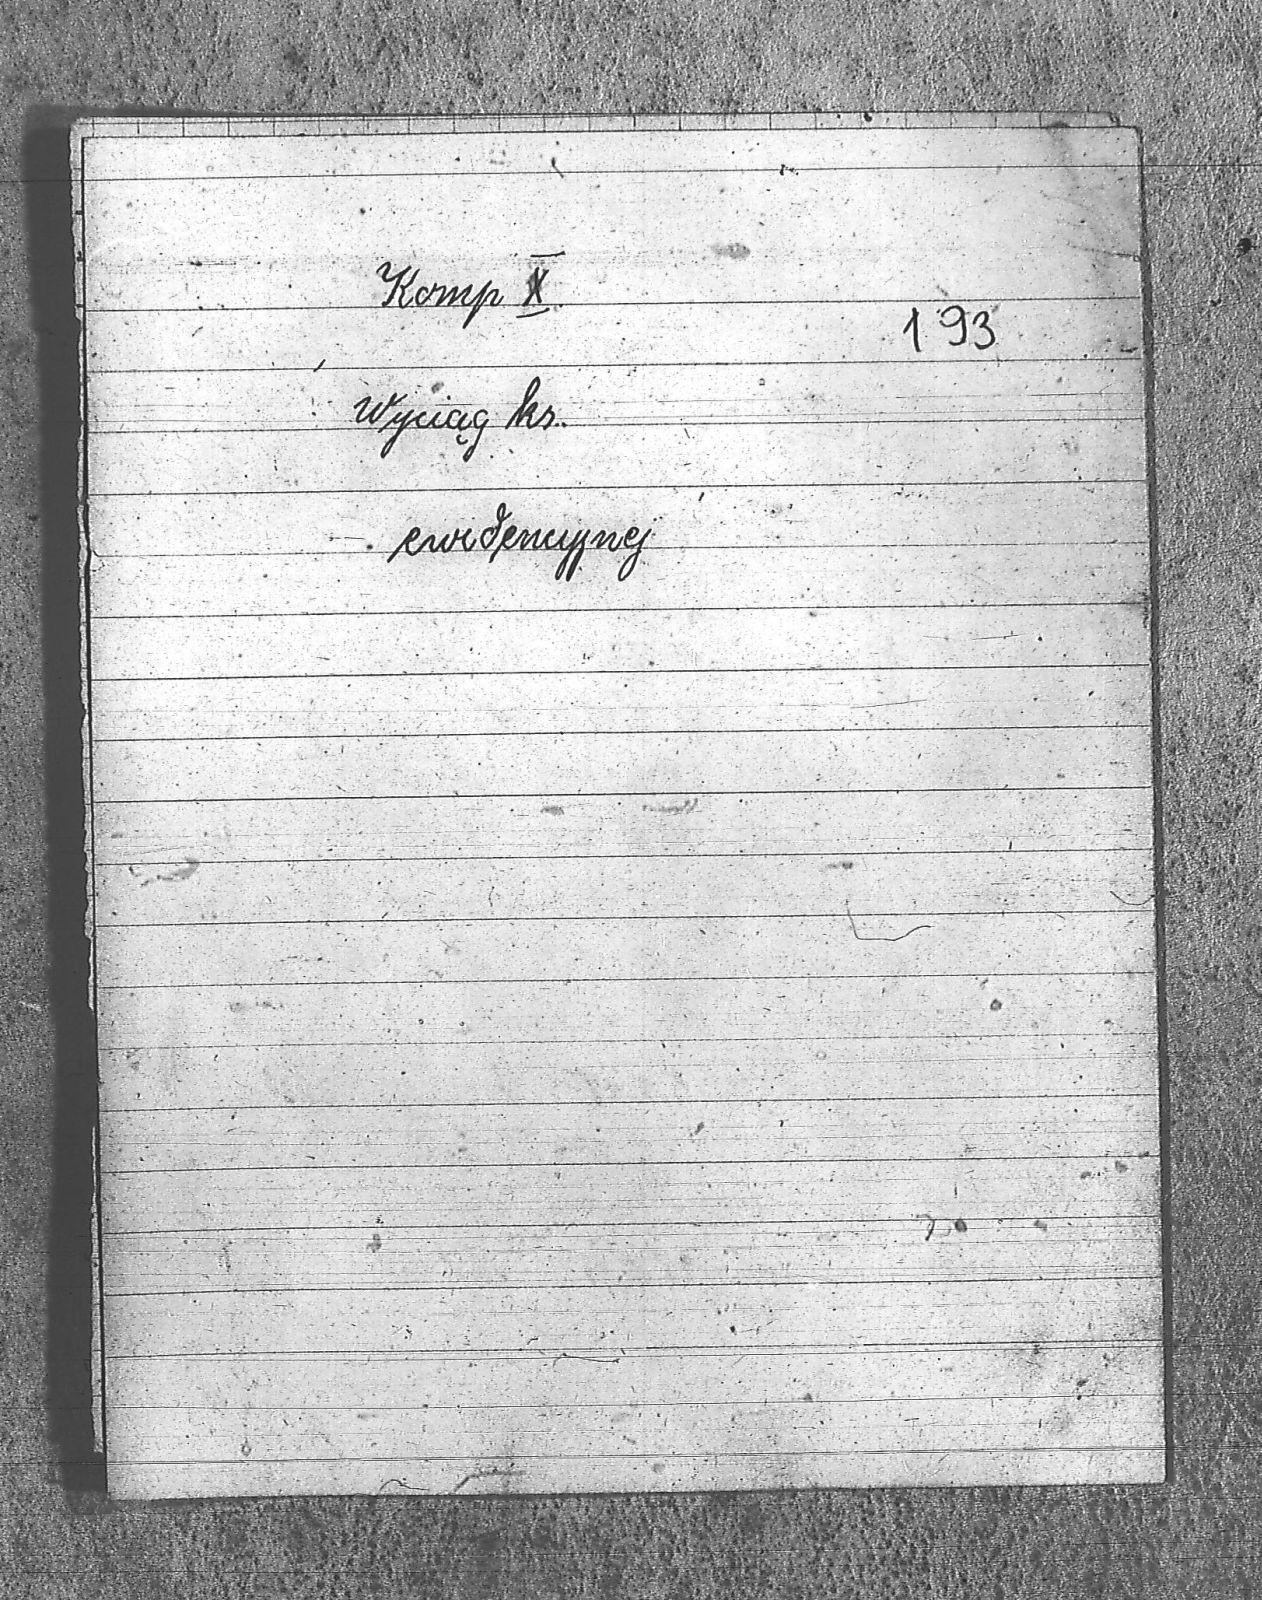 Komp X
193
Wyciąg ks.
ewidencyjnej